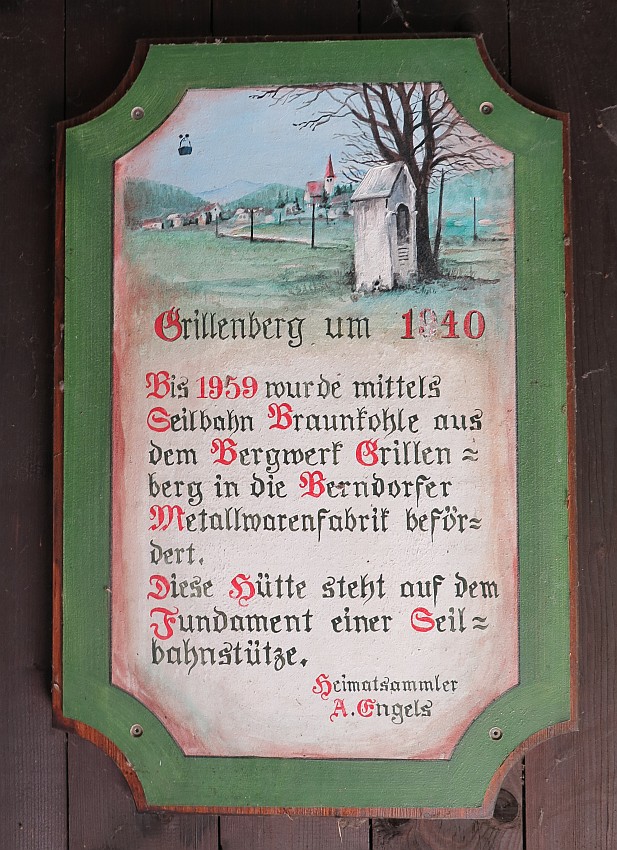 Grillenberg um 1940
Bis 1959 wurde mittels
Seilbahn Braunkohle aus
dem Bergwerk Grillen=
berg in die Berndorfer
Metallwarenfabrik beför=
dert.
Diese Hütte steht auf dem
Fundament einer Seil=
bahnstütze.
Heimatsammler
A. Engels